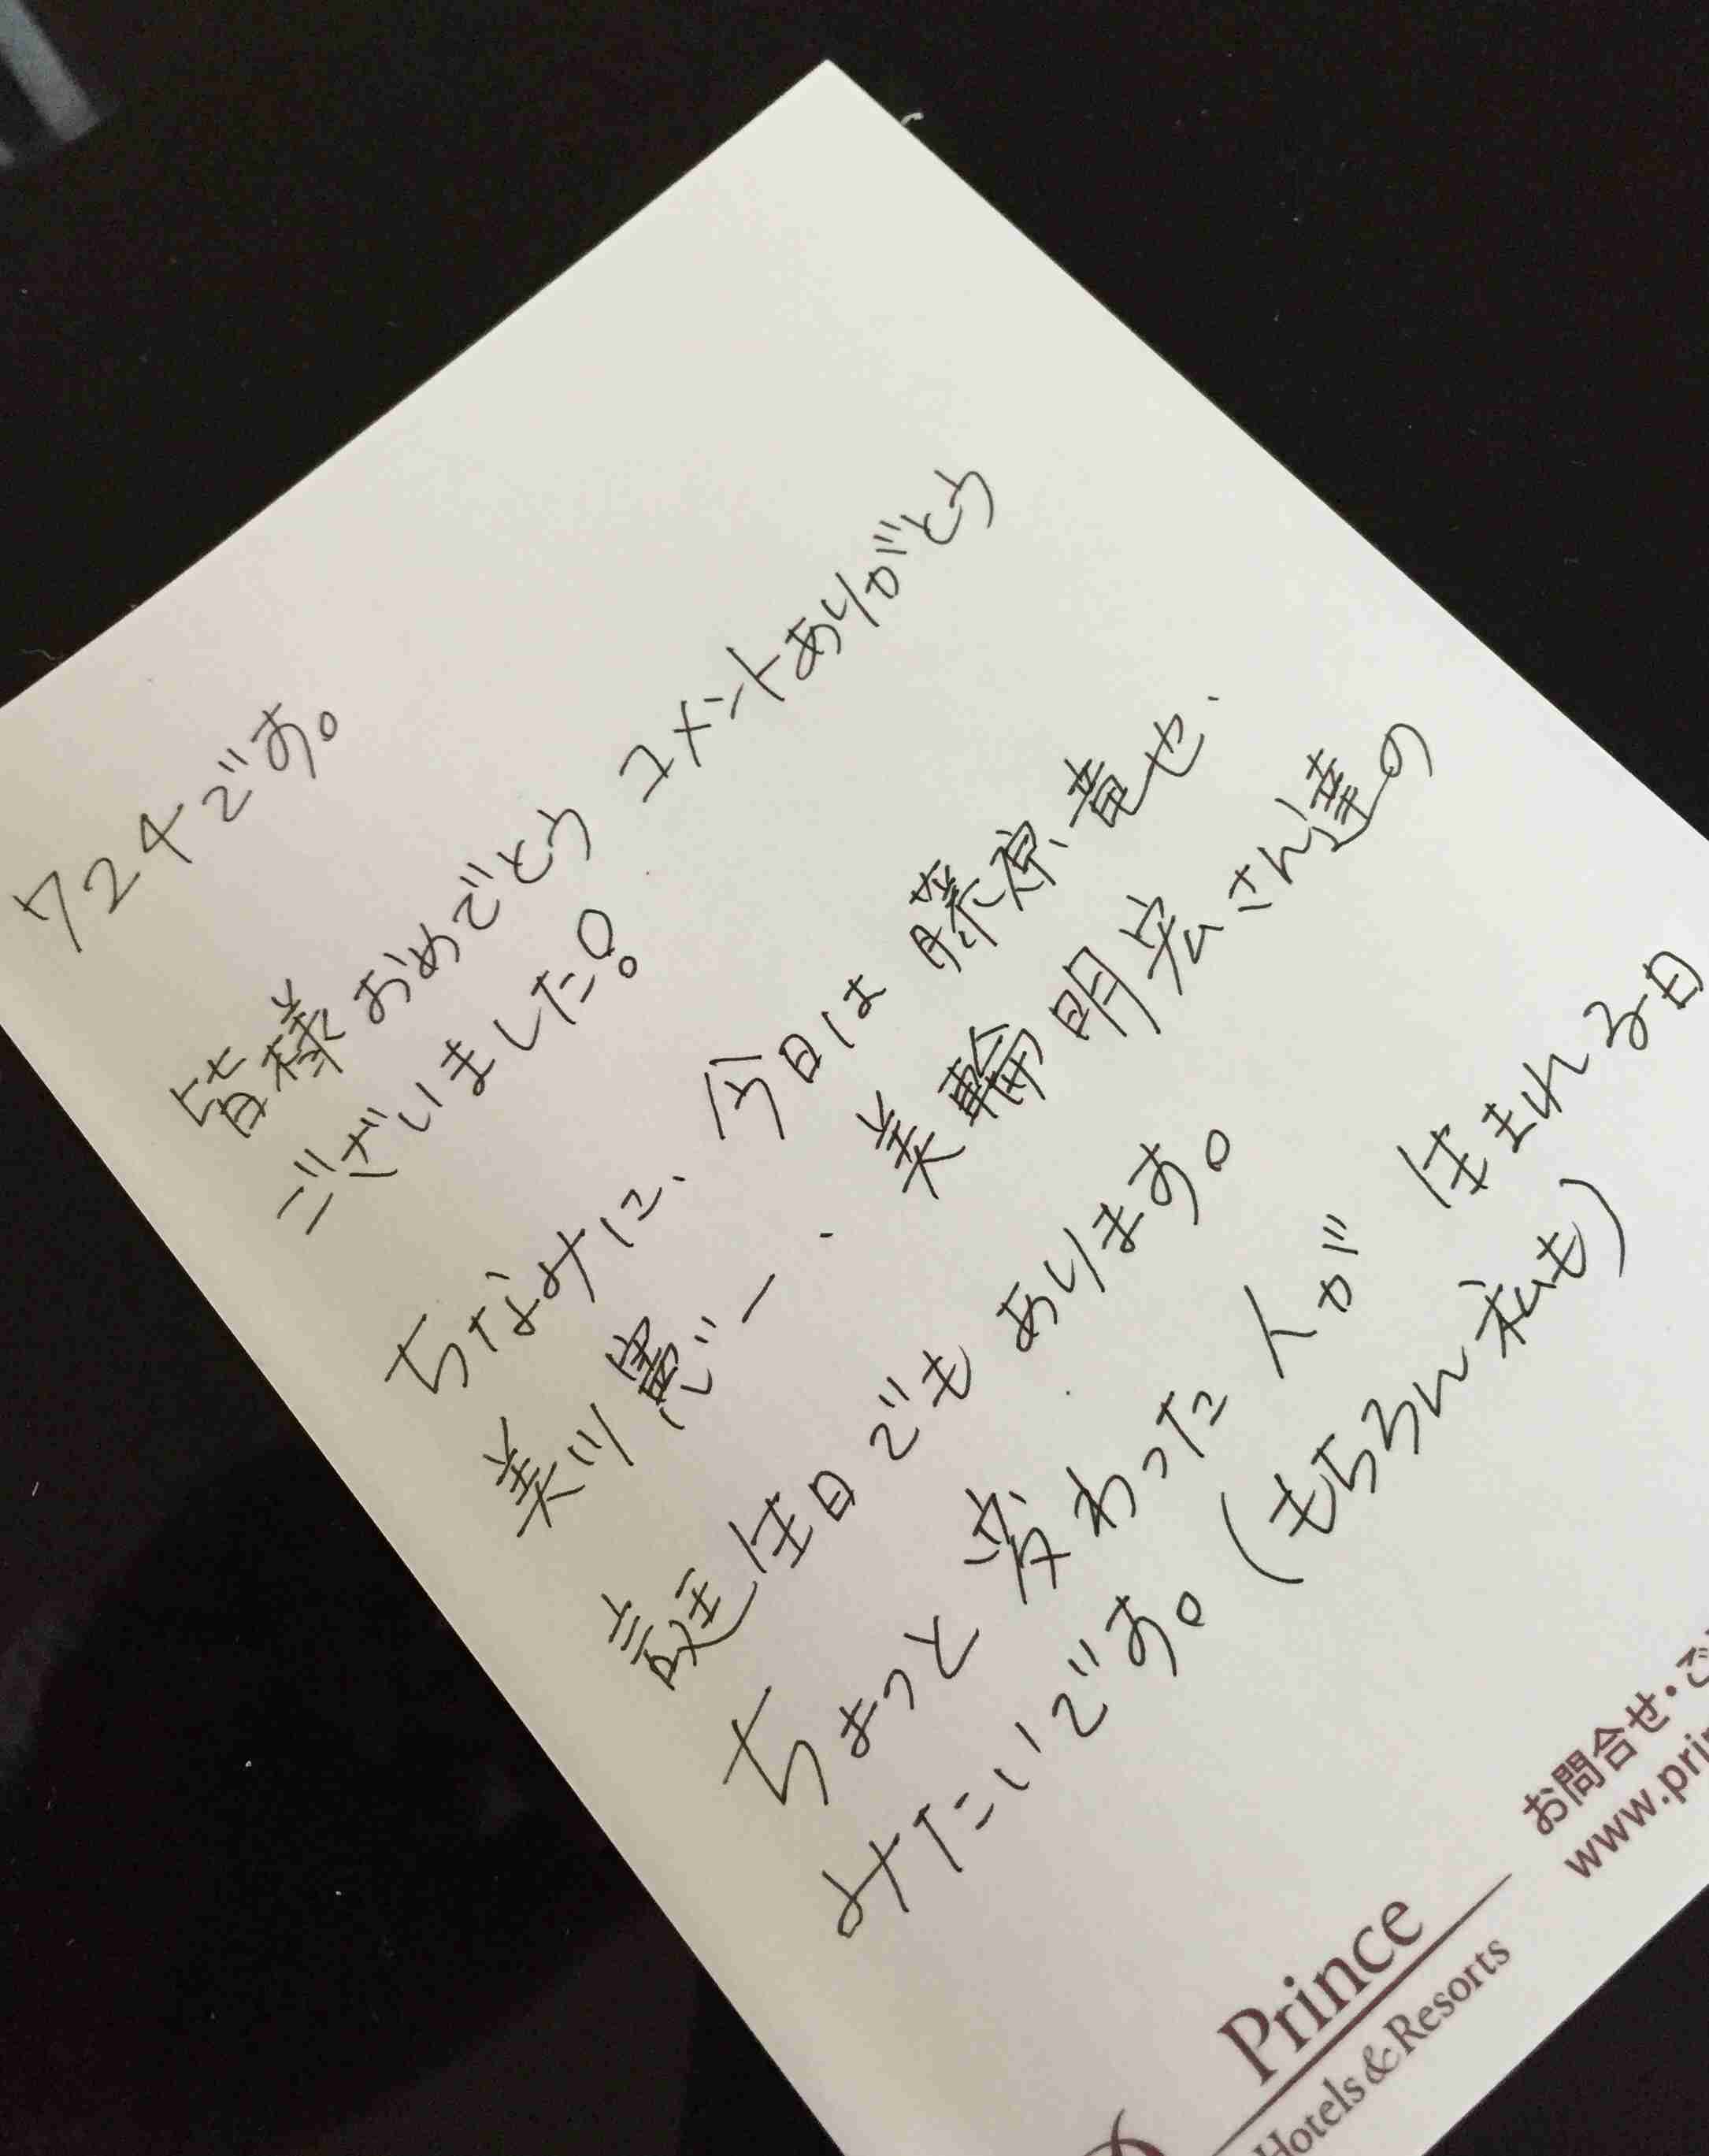 724です。
皆様おめでとう コメントありがとう
ございました!
ちなみに、今日は 藤原竜也.
美川憲一. 美輪明宏さん達の
誕生日でもあります。
ちょっと変わった人が 生まれる日
みたいです。(もちろん私も)
お問合せ・ご
www.prin
Prince
Hotels&Resorts